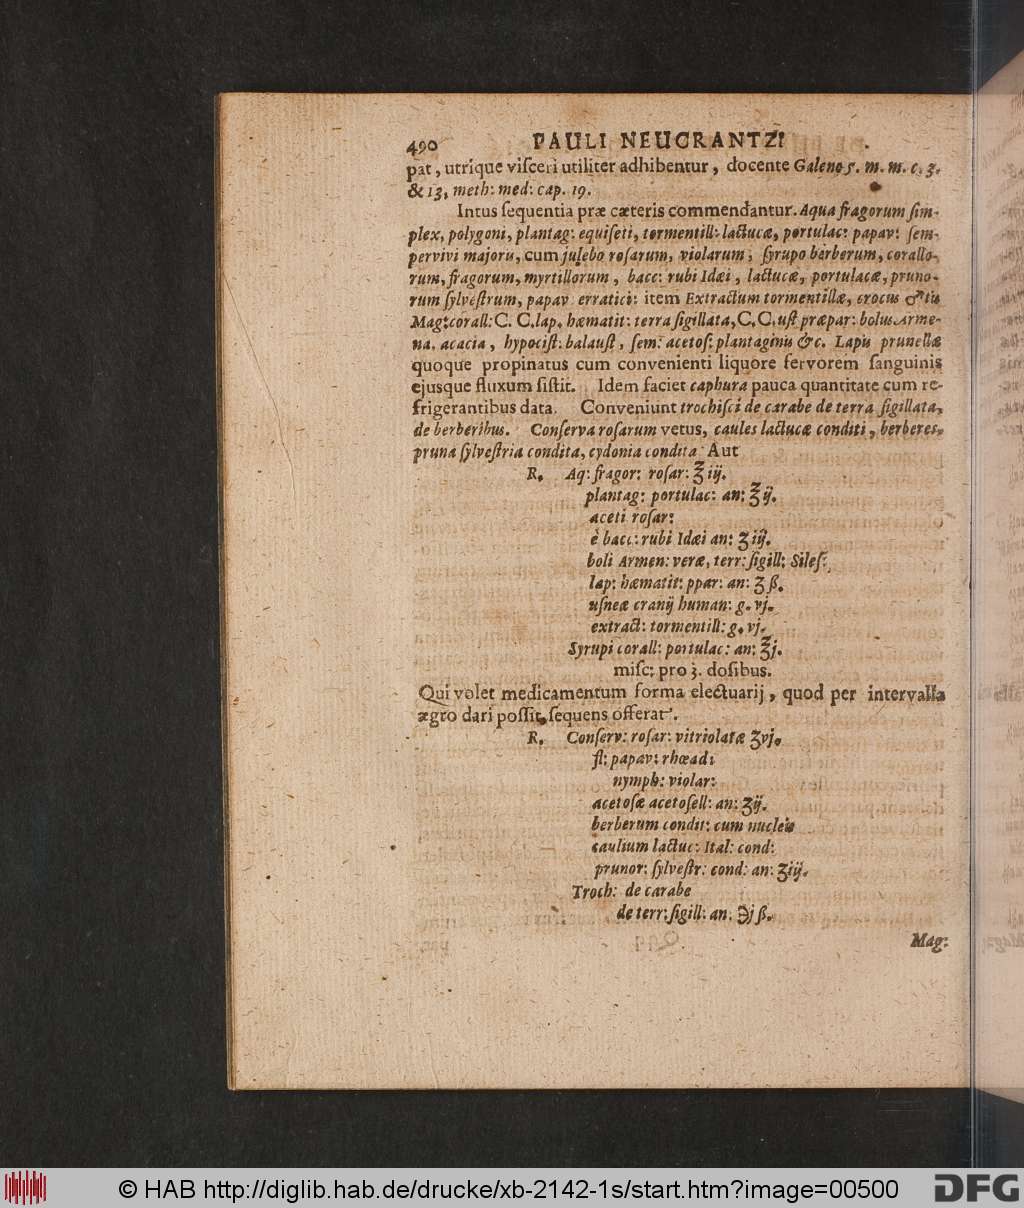 490 PAULI NEUCRANTZI
pat, utrique visceri utiliter adhibentur, docente Galeno 5. m. m. c. 3.
& 13, meth: med: cap. 19.
Intus sequentia præ cæteris commendantur. Aqua fragorum sim-
plex, polygoni, plantag: equiseti, tormentill: lactucæ, portulac: papav: sem-
pervivi majoris, cum julebo rosarum, violarum, syrupo berberum, corallo-
rum, fragorum, myrtillorum, bacc: rubi Idæi, lactucæ, portulacæ, pruno-
rum sylvestrum, papav erratici: item Extractum tormentillæ, crocus ♂tis
Mag: corall: C. C. lap. hæmatit: terra sigillata, C. C. ust præpar: bolus Arme-
na, acacia, hypocist: balaust, sem: acetos: plantaginis &c. Lapis prunellæ
quoque propinatus cum convenienti liquore fervorem sanguinis
ejusque fluxum sistit. Idem faciet caphura pauca quantitate cum re-
frigerantibus data. Conveniunt trochisci de carabe de terra sigillata,
de berberibus. Conserva rosarum vetus, caules lactucæ conditi, berberes,
pruna sylvestria condita, cydonia condita Aut
R. Aq: fragor: rosar: ℥ iij.
plantag: portulac: an: ℥ ij.
aceti rosar:
è bacc: rubi Idæi an: ʒ iij.
boli Armen: veræ, terr: sigill: Siles:
lap: hæmatit: ppar: an: ʒ ß.
usneæ cranij human: g. vj.
extract: tormentill: g. vj.
Syrupi corall: portulac: an: ℥j.
misc: pro 3. dosibus.
Qui volet medicamentum forma electuarij, quod per intervalla
ægro dari possit, sequens offerat.
R. Conserv: rosar: vitriolatæ ʒvj.
fl: papav: rhœad:
nymph: violar:
acetosæ acetosell: an: ʒij.
berberum condit: cum nucleis
caulium lactuc: Ital: cond:
prunor: sylvestr: cond: an: ʒiij.
Troch: de carabe
de terr: sigill: an: ℈j ß.
Mag:
© HAB http://diglib.hab.de/drucke/xb-2142-1s/start.htm?image=00500
DFG